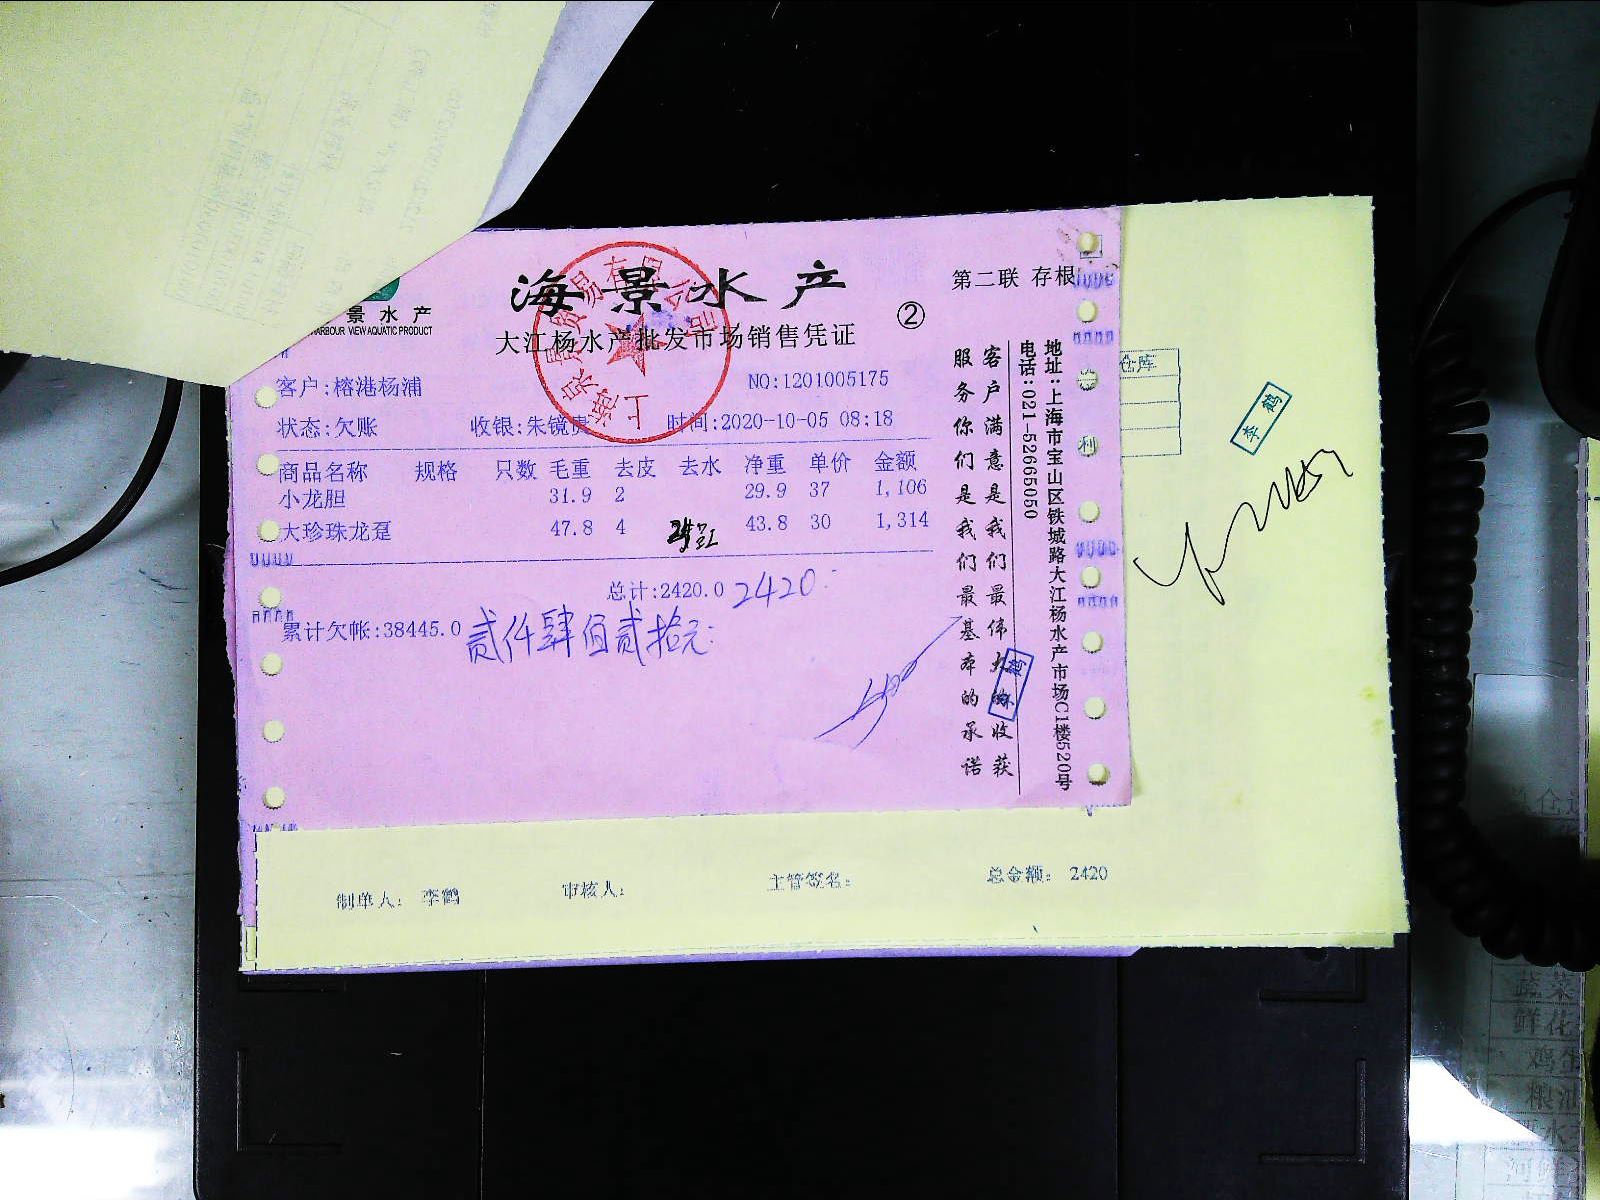 海景水产
大江杨水产批发市场销售凭证
②
第二联 存根
景水产
HARBOUR VIEW AQUATIC PRODUCT
客户:榕港杨浦
NO:1201005175
状态:欠账 收银:朱镜 时间:2020-10-05 08:18
商品名称 规格 只数 毛重 去皮 去水 净重 单价 金额
小龙胆 31.9 2 29.9 37 1,106
大珍珠龙趸 47.8 4 43.8 30 1,314
总计:2420.0 2420
累计欠帐:38445.0 贰仟肆佰贰拾元
客户满意是我们最伟大的收获
服务你们是我们最基本的承诺
地址:上海市宝山区铁城路大江杨水产市场C1楼520号
电话:021-52665050
仓库
李鹤
制单人: 李鹤 审核人: 主管签名: 总金额: 2420
蔬菜
鲜花
鸡蛋
粮油